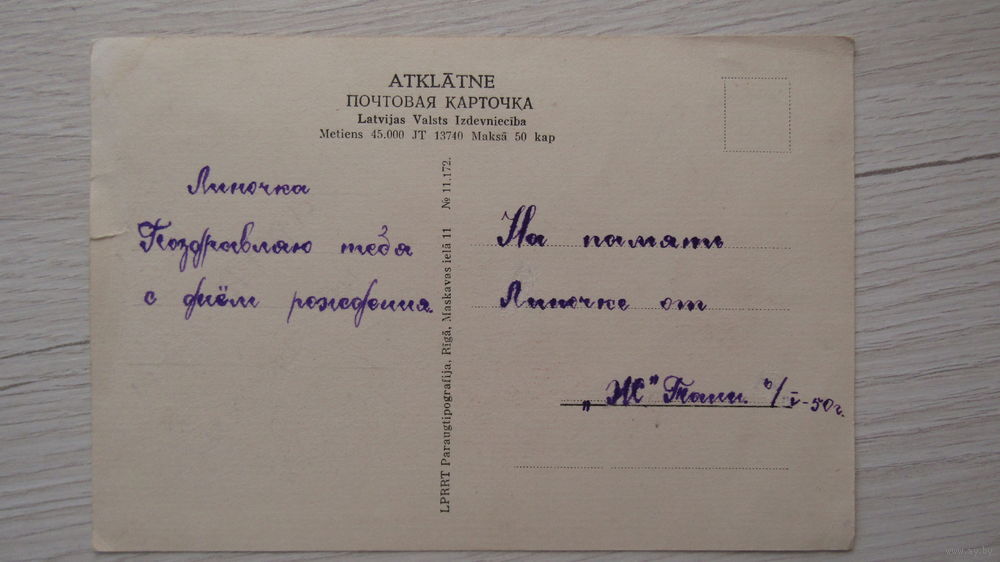 ATKLĀTNE
ПОЧТОВАЯ КАРТОЧКА
Latvijas Valsts Izdevniecība
Metiens 45.000 JT 13740 Maksā 50 kap
Линочка
Поздравляю тебя
с днём рождения.
LPRRT Paraugtipografija, Rīgā, Maskavas ielā 11 № 11.172.
На память
Линочке от
„Ж" Тани. 6/I-50г.
www.ay.by